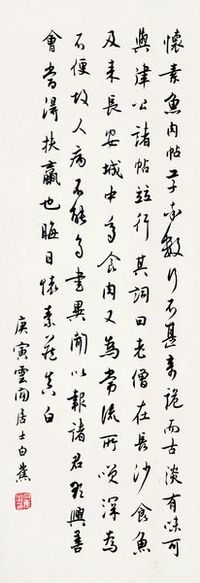 懷素魚肉帖數行不甚奇詭而古淡有味可
與律公諸帖並行其詞曰老僧在長沙食魚
及來長安城中多食肉又為常流所笑深為
不便故人病不能多書異聞以報諸君欲興善
會當得扶羸也晦日懷素藏真白
庚寅雲間居士白蕉